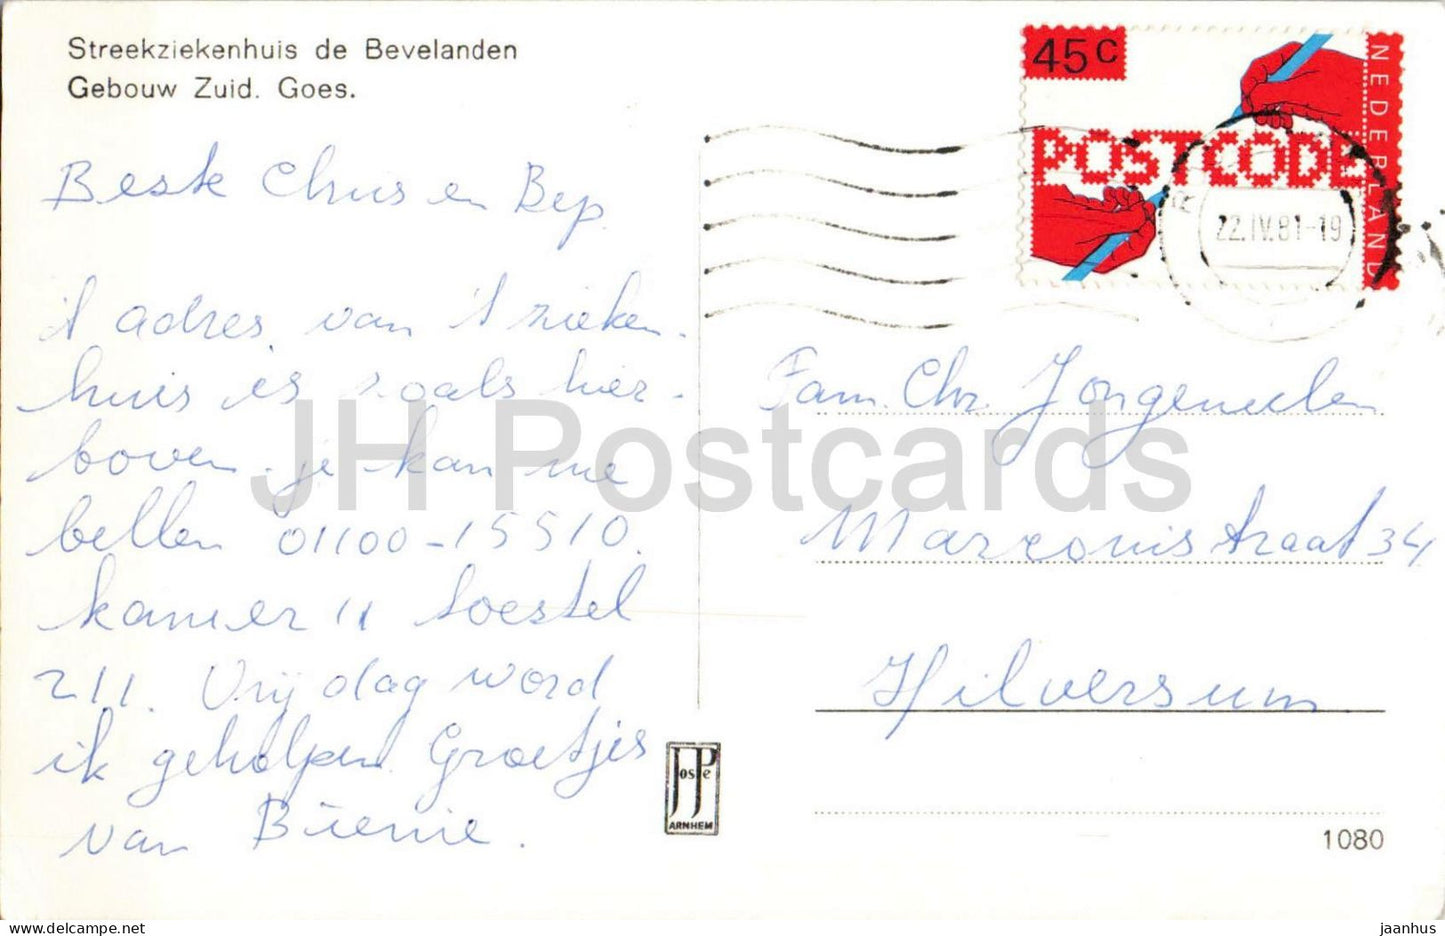 Streekziekenhuis de Bevelanden
Gebouw Zuid. Goes.
45c
NEDERLAND
POSTCODE
22.IV.81-19
Beste Chris en Bep.
't adres van 't zieken-
huis is zoals hier-
boven. je kan me
bellen 01100-15510.
kamer 11 toestel
211. Vrijdag word
ik geholpen Groetjes
van
Fam. Chr. Jongeneelen
Marconistraat 34
Hilversum
JosPe
ARNHEM
1080
JH Postcards
www.delcampe.net
jaanhus